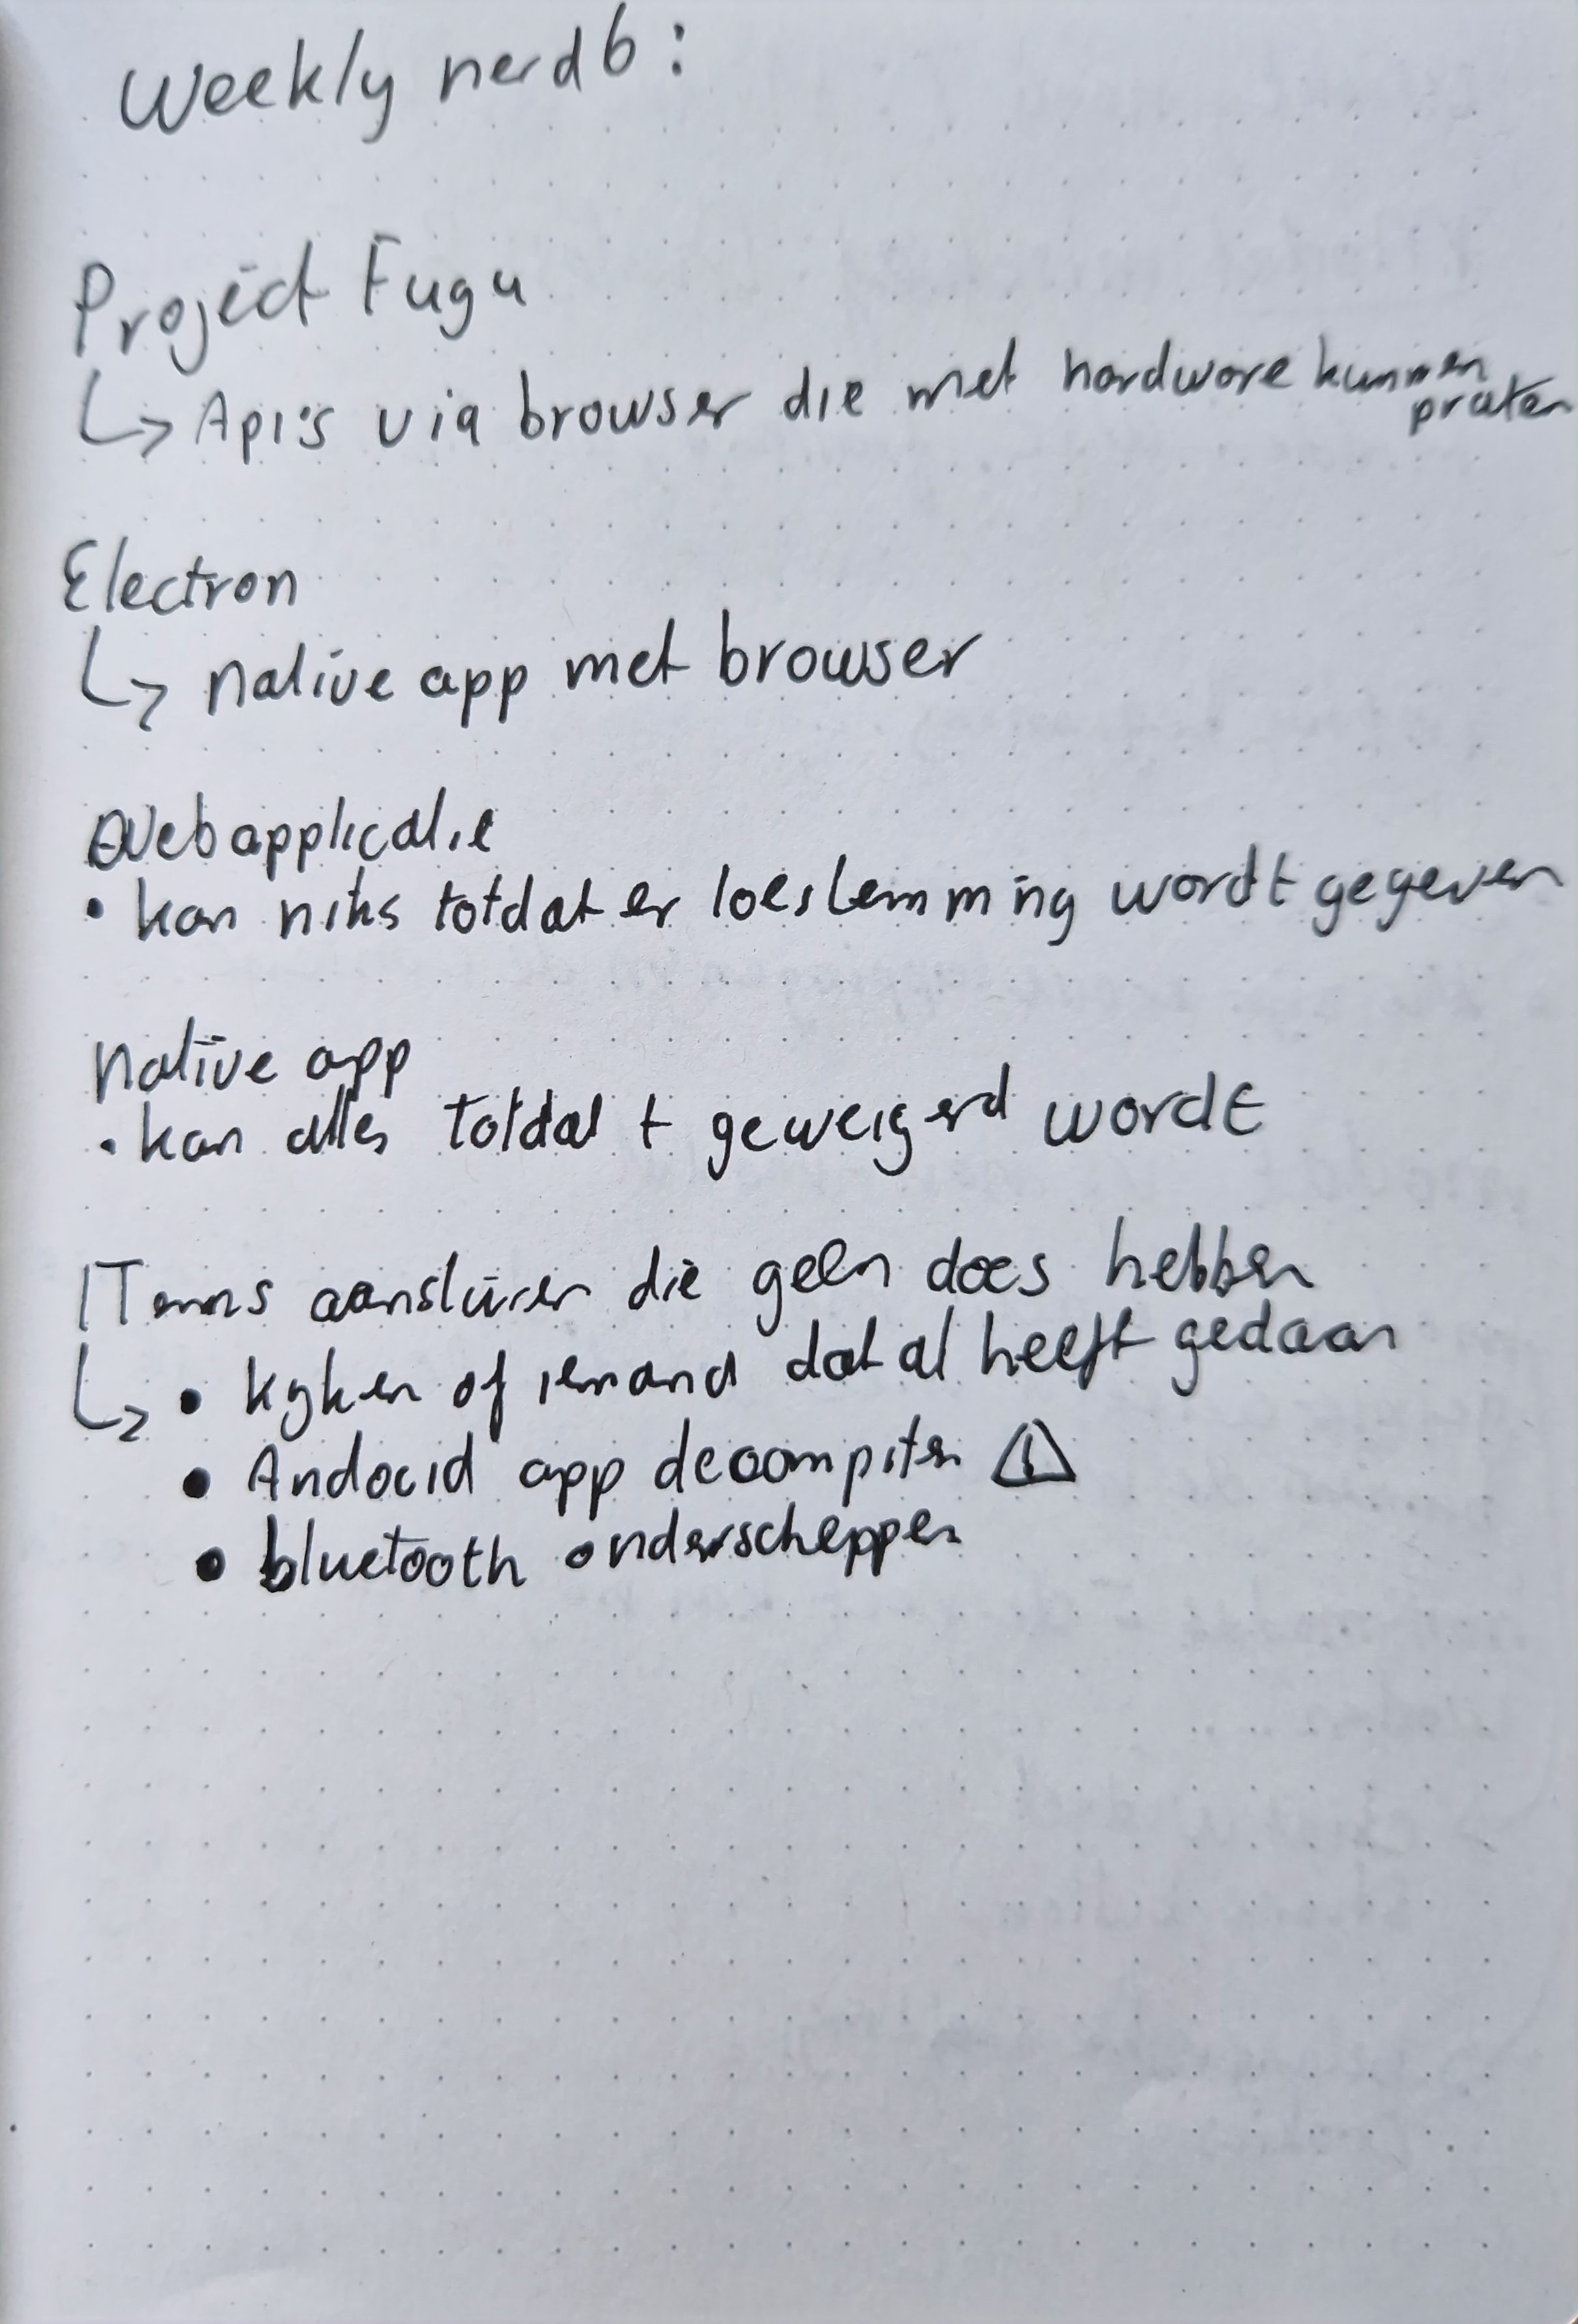 Weekly nerd 6:
Project Fugu
↳ Api's via browser die met hardware kunnen praten
Electron
↳ native app met browser
Webapplicatie
• kan niks totdat er toestemming wordt gegeven
native app
• kan alles totdat t geweigerd wordt
ITems aansturen die geen docs hebben
↳ • kijken of iemand dat al heeft gedaan
• Andocid app decompilen ⚠
• bluetooth onderscheppen